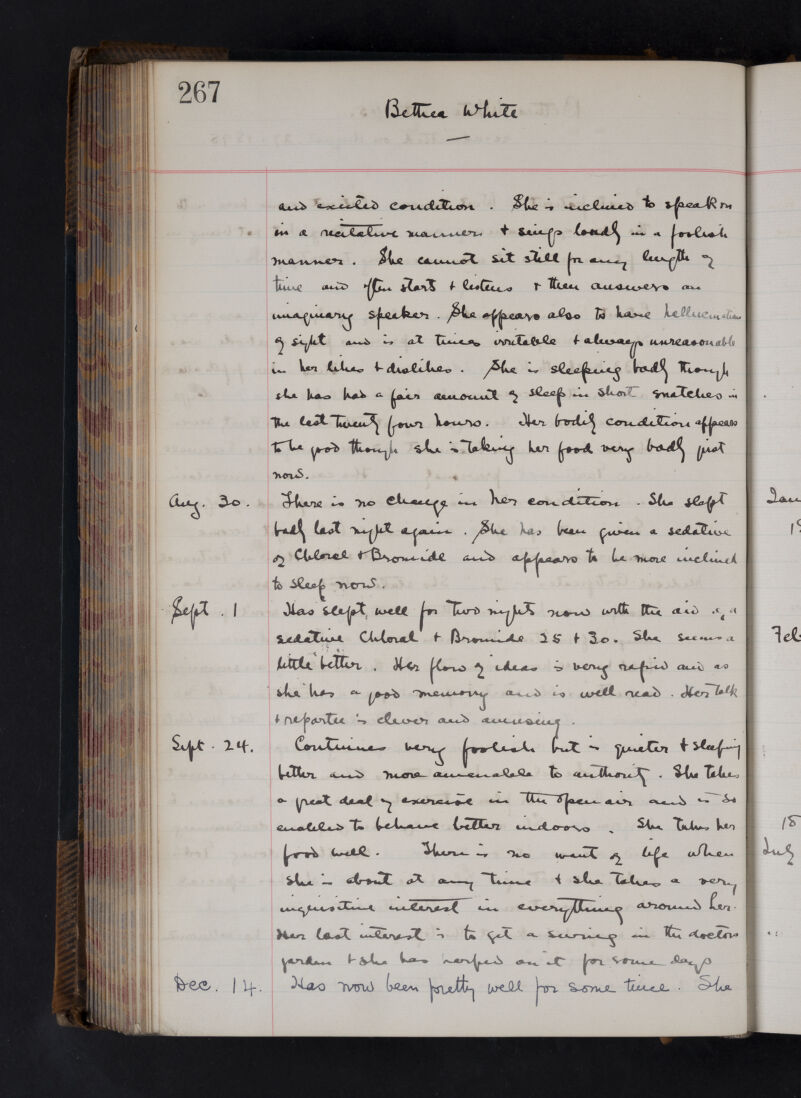 267
Bethea White
and excited condition. She is inclined to speak on
in a recitative manner & sings loudly in a foolish
manner. She cannot sit still for any length of
time and often starts & listens & then answers an
imaginary speaker. She appears also to have hallucinations
of sight and is at times irritable & always unreasonable
in her likes & dislikes. She is sleeping badly though
she has had a fair amount of sleep in short snatches in
the last twenty four hours. Her bodily condition appears
to be good though she is taking her food very badly just
now.
Aug. 30. There is no change in her condition. She slept
badly last night again. She has been given a sedative
of Chloral & Bromide and appears to be more inclined
to sleep now.
Sept. 1 Has slept well for two nights now with the aid of a
sedative Chloral & Bromide 25 & 30. She seems a
little better. Her flow of ideas is very rapid and as
she has a good memory and is well read. Her talk
& repartee is clever and amusing.
Sept. 24. Continues very foolish but is quieter & sleeping
better and more amenable to authority. She takes
a great deal of exercise in the open air and is so
enabled to behave better indoors. She takes her
food well. There is no want of life when
she is about at any time & she takes a very
inquisitive interest in everything around her.
Her last interest is to get a swing in the doctors
garden & she has harped on it for some days
Dec. 14. Has now been pretty well for some time. She
Jan
Feb
18
July